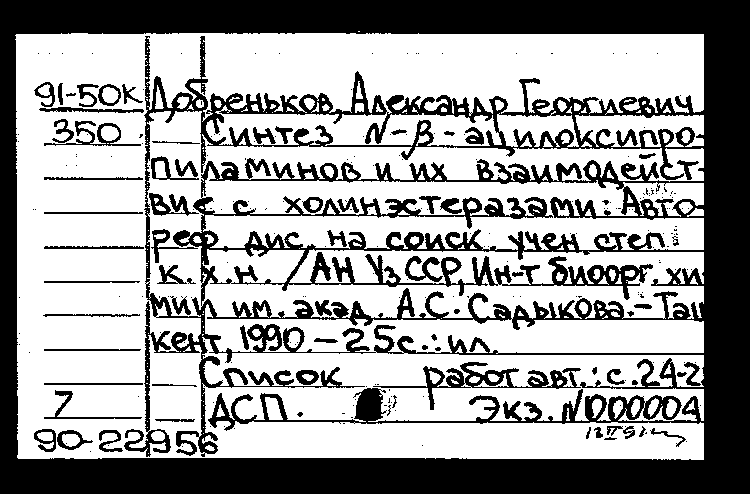 91-50к Добреньков, Александр Георгиевич
350 Синтез N-β-ацилоксипро-
пиламинов и их взаимодейст-
вие с холинэстеразами: Авто-
реф. дис. на соиск. учен. степ.
к.х.н. /АН УзССР, Ин-т биоорг. хи-
мии им. акад. А.С. Садыкова.-Таш
кент, 1990.-25с.:ил.
Список работ авт.: с.24-2
7 ДСП. Экз. N000004
90-22956